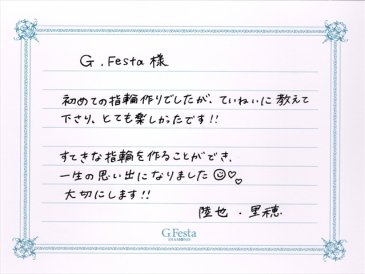 G.Festa 様
初めての指輪作りでしたが、ていねいに教えて
下さり、とても楽しかたです!!
すてきな指輪を作ることができ、
一生の思い出になりました☺♡♡
大切にします!!
陸也・里穂
G.Festa
DIAMOND